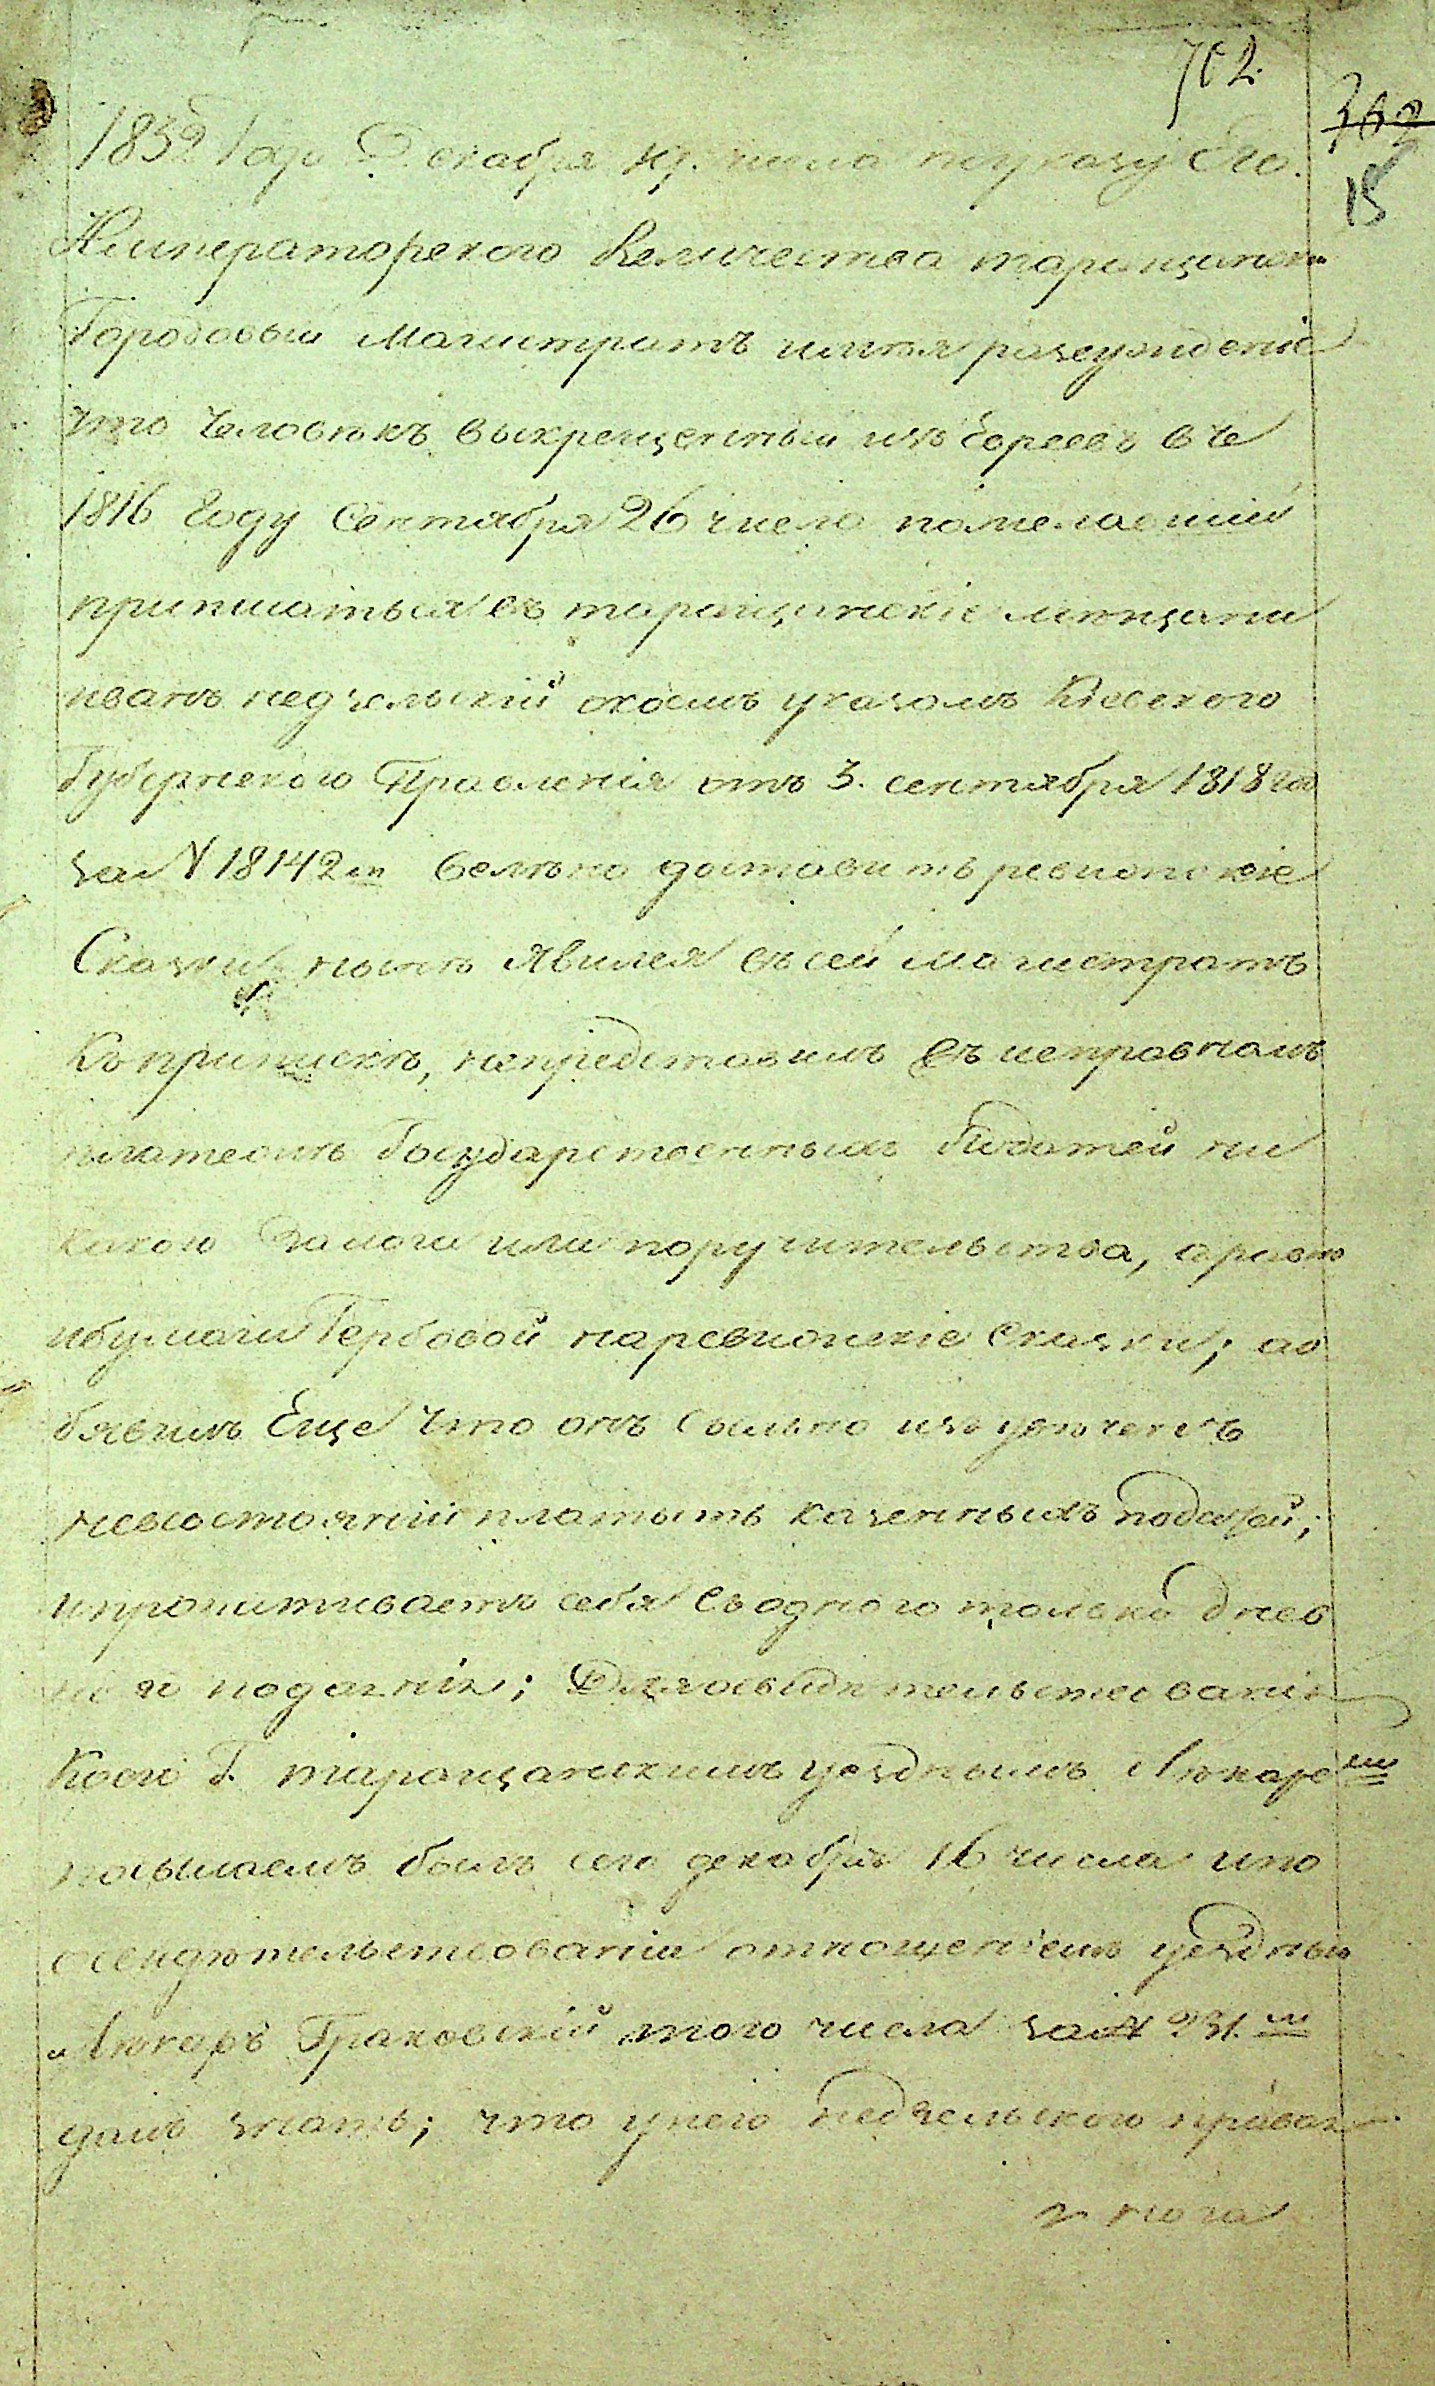 702
362
15
1832 Года Декабря 19. числа поуказу Его.
Императорского Величества таращанскій
Городовый Магистратъ имѣя разсужденіе
что Человѣкъ выкрещенный изъ Евреевъ въ
1816 Году Сентября 26 числа пожелавшій
приписаться въ таращанскіе мѣщани
иванъ недзельскій окоемъ указомъ Кіевского
Губернского Правленія отъ 3. сентября 1818 год
за N 18142м велѣно доставить ревизскіе
Сказки нынѣ Явился въ сей магистратъ
Къ припискѣ, непредставилъ въ исправномъ
платежѣ Государственныхъ Податей ни
какого Залога или поручительства, аравно
ибумаги Гербовой наревизскіе сказки; аоб
бявилъ Еще что онъ сильно изувѣченъ
несостояніи платить казенныхъ податей;
ипропитиваетъ себя съ одного только днев
но подаянія; Для освидѣтельствованія
Коего Г. таращанскимъ уезднымъ Лѣкаремъ
посылаемъ былъ сего декабря 16 числа ипо
освидѣтельствованіи отношеніемъ уездный
Лѣкарь Граковскій того числа за N 231.м
далъ знать; что унего недзельского правая
нога